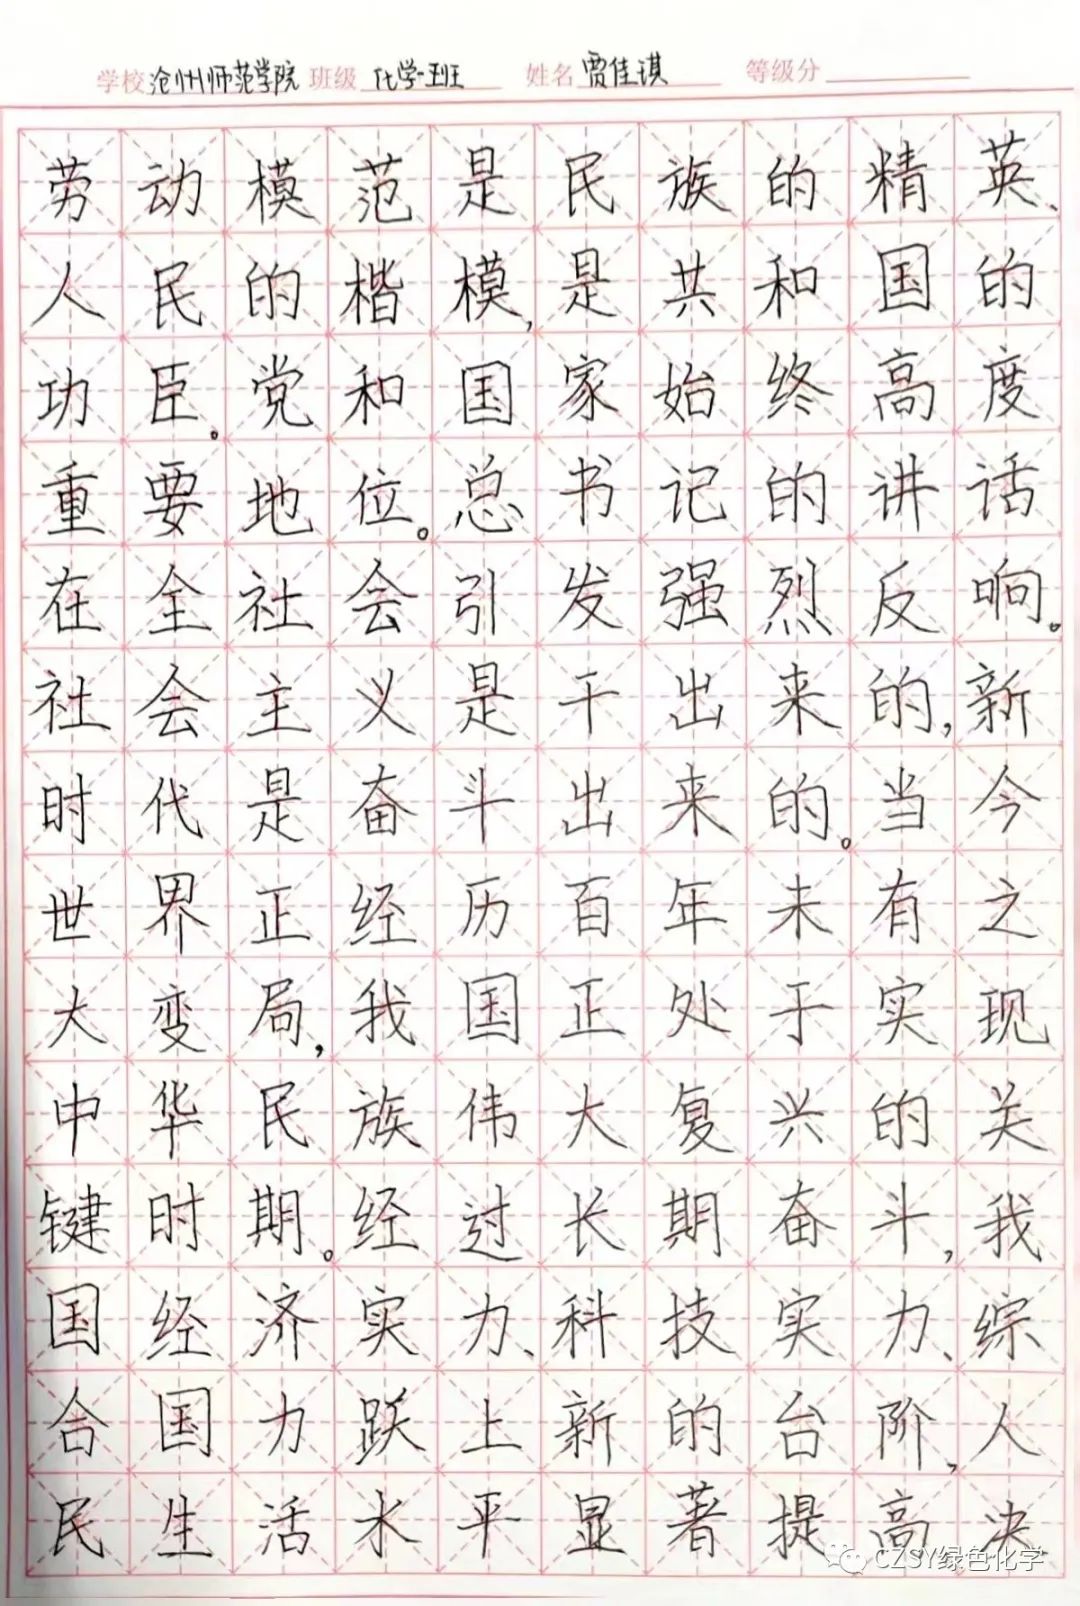 学校 沧州师范学院 班级 化学一班 姓名 贾佳琪 等级分
劳动模范是民族的精英、
人民的楷模,是共和国的
功臣。党和国家始终高度
重要地位。总书记的讲话
在全社会引发强烈反响。
社会主义是干出来的,新
时代是奋斗出来的。当今
世界正经历百年未有之
大变局,我国正处于实现
中华民族伟大复兴的关
键时期。经过长期奋斗,我
国经济实力、科技实力、综
合国力跃上新的台阶,人
民生活水平显著提高决
CZSY绿色化学